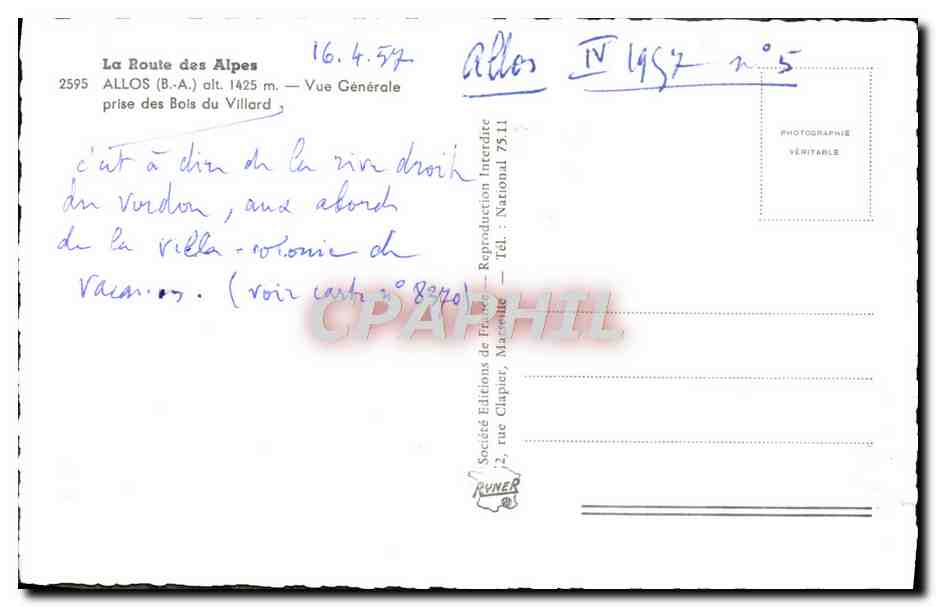 La Route des Alpes
2595 ALLOS (B.-A.) alt. 1425 m. — Vue Générale
prise des Bois du Villard,
16.4.57
Allos IV 1957 n° 5
c'est à dire de la rive droite
du Verdon, aux abords
de la villa-colonie de
vacances. (voir carte n° 8370)
CPAPHIL
Société Editions de France — Reproduction Interdite
2, rue Clapier, Marseille — Tél. : National 75.11
RYNER
PHOTOGRAPHIE
VÉRITABLE